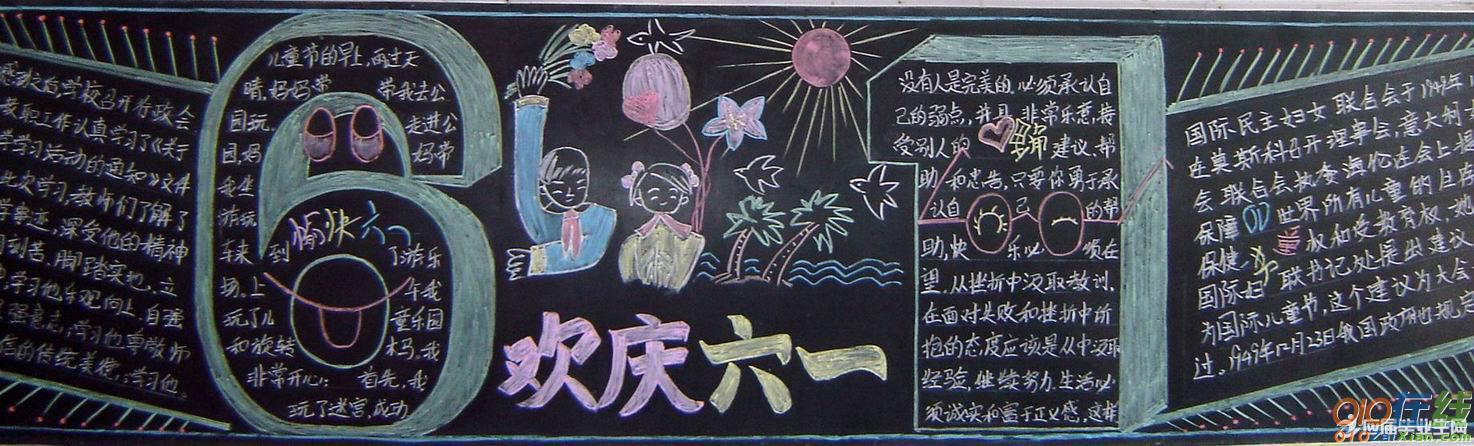 学校召开行政会
教职工作认真学习了《关于
学学习活动的通知》文件
此次学习,教师们了解了
学事迹,深受他的精神
刻苦、脚踏实地、立
学习他乐观向上、自强
坚强意志,学习他尊敬师
信的传统美德,学习他
儿童节的早上,雨过天
晴,妈妈带 带我去公
园玩。 走进公
园妈 妈带
我坐
游玩
车来到 了游乐
愉快六一
场。上 午我
玩了儿 童乐园
和旋转 木马。我
非常开心;首先,我
玩了迷宫,成功
欢庆六一
没有人是完美的,必须承认自
己的弱点,并且 非常乐意接
受别人的 建议、帮
助 和忠告,只要你勇于承
认自 己 的帮
助,快 乐必 须在
望。从挫折中汲取教训,
在面对失败和挫折中所
抱的态度应该是从中汲取
经验,继续努力。生活必
须诚实和富于正义感,这样
国际民主妇女联合会于1949年11
在莫斯科召开理事会,意大利
会联合会执委海伦在会上提
保障 世界所有儿童的生存
保健 权和受教育权,她
国际妇 联书记处提出建议
为国际儿童节,这个建议为大会
过。1949年12月23日我国政府也规定
应届毕业生网